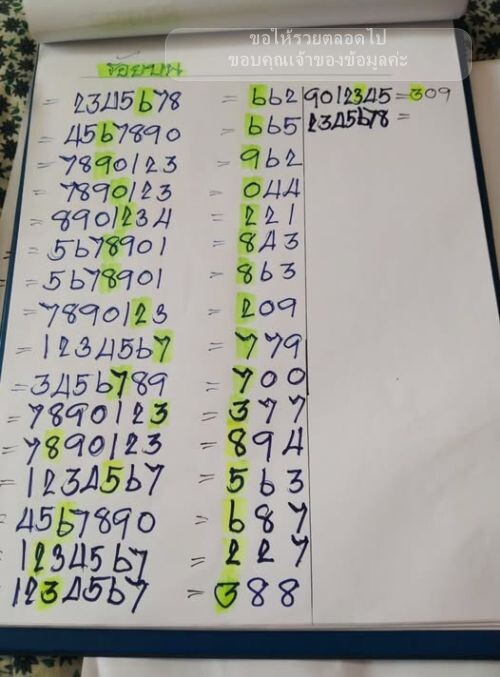 ขอให้รวยตลอดไป
ขอบคุณเจ้าของข้อมูลค่ะ
ร้อยบน
= 2345678 = 662
= 4567890 = 665
= 7890123 = 962
= 7890123 = 044
= 8901234 = 221
= 5678901 = 843
= 5678901 = 863
= 7890123 = 209
= 1234567 = 779
= 3456789 = 700
= 7890123 = 377
= 7890123 = 894
= 1234567 = 563
= 4567890 = 687
= 1234567 = 227
1234567 = 388
9012345 = 309
2345678 =